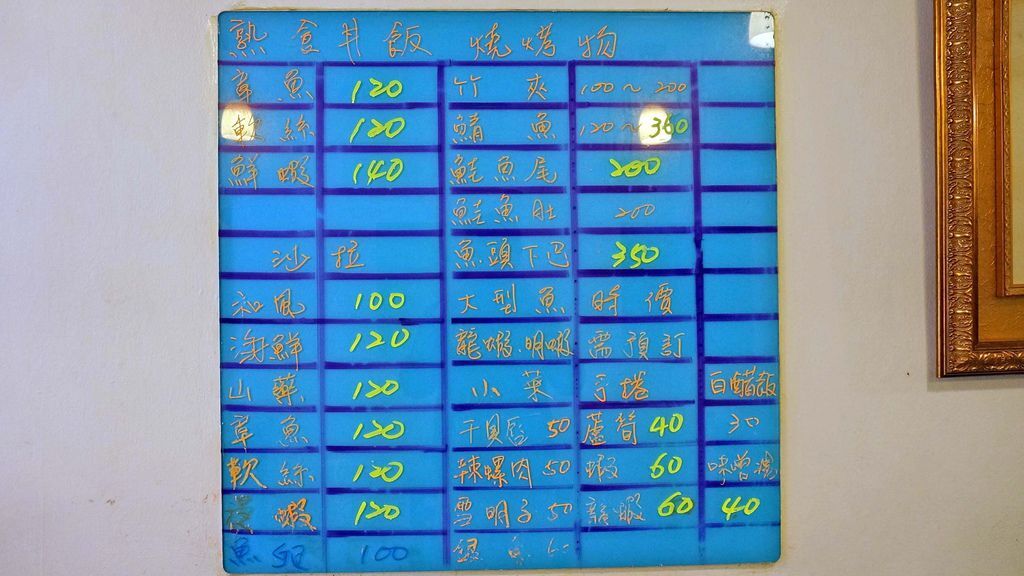 熟食丼飯 燒烤物
章魚 120 竹夾 100~200
軟絲 120 鯖魚 120~360
鮮蝦 140 鮭魚尾 200
鮭魚肚 200
沙拉 魚頭下巴 350
和風 100 大型魚 時價
海鮮 120 龍蝦.明蝦 需預訂
山藥 120 小菜 手捲 白醋飯
章魚 120 干貝唇 50 蘆筍 40 30
軟絲 120 辣螺肉 50 蝦 60 味噌湯
蝦 120 雪明子 50 龍蝦 60 40
魚卵 100 銀魚